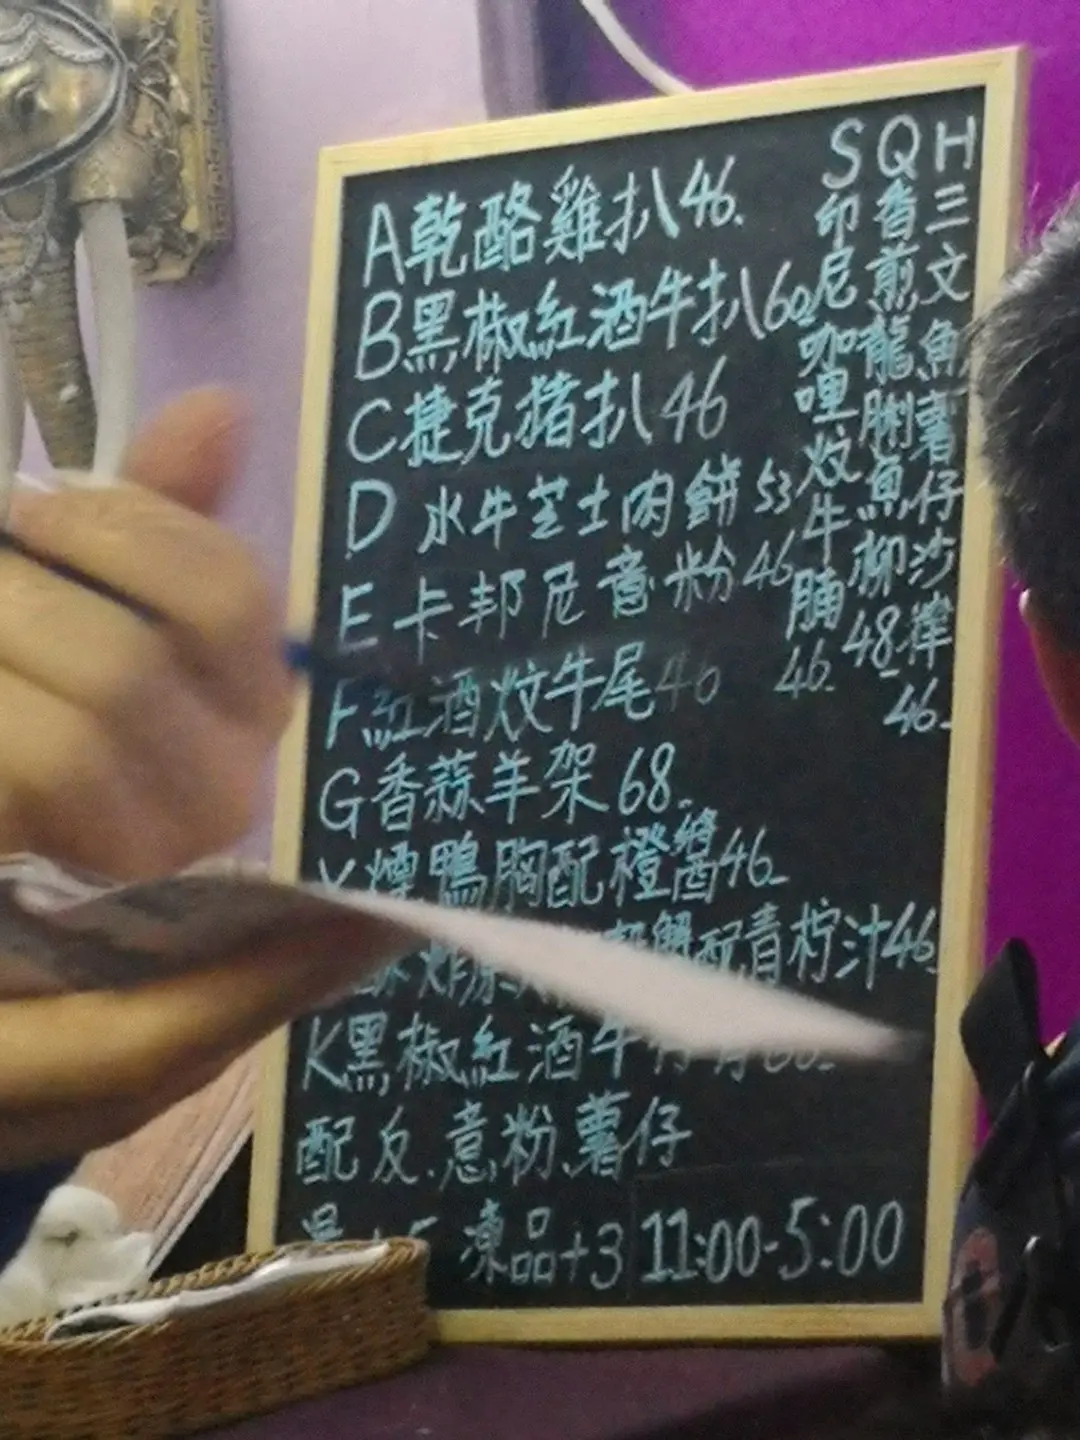 A乾酪雞扒46.
B黑椒紅酒牛扒60
C捷克猪扒46
D水牛芝士肉餅53
E卡邦尼意粉46
F紅酒炆牛尾46
G香蒜羊架68.
煙鴨胸配橙醬46
蟹配青柠汁46
K黑椒紅酒牛
配反.意粉.薯仔
凍品+3 11:00-5:00
S印尼咖喱炆牛腩46.
Q香煎龍脷魚柳48
H三文魚薯仔沙律46